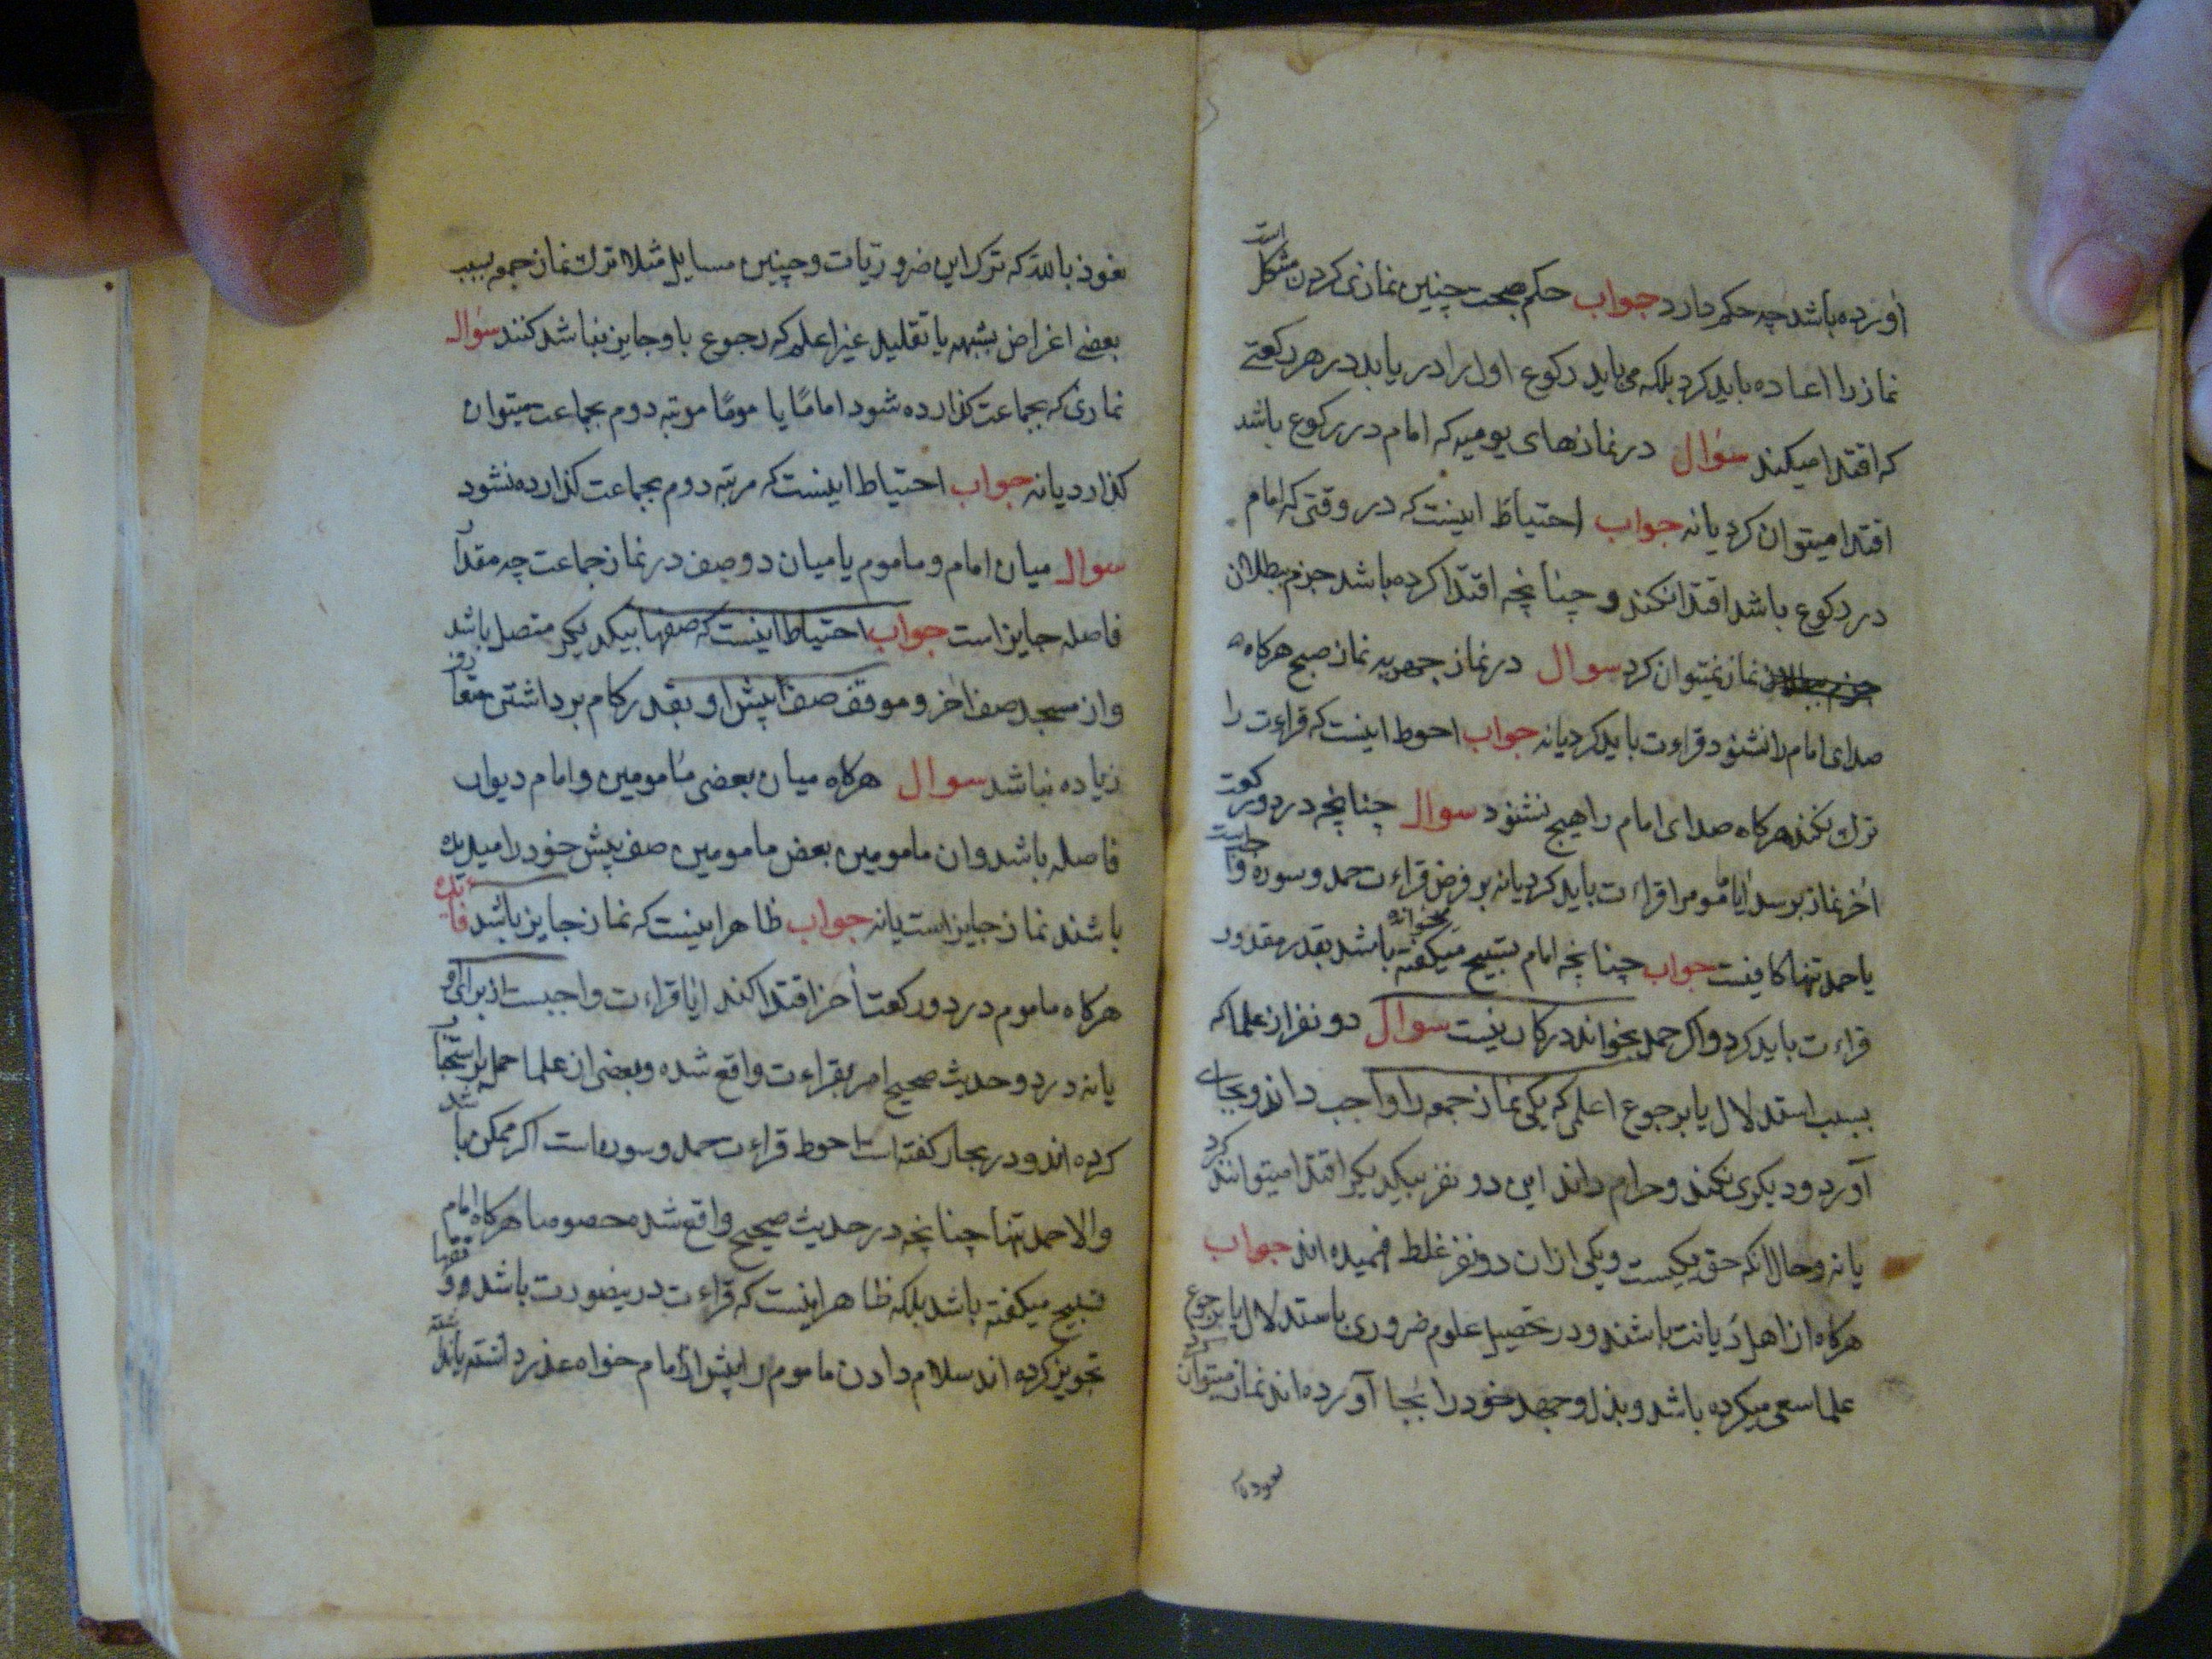 آورده باشد چه حکم دارد جواب حکم صحت چنین نمازی کردن مشکل است
نماز را اعاده باید کرد بلکه می باید رکوع اول را دریابد در هر رکعتی
که اقتدا میکند سؤال در نمازهای یومیه که امام در رکوع باشد
اقتدا میتوان کرد یا نه جواب احتیاط اینست که در وقتی که امام
در رکوع باشد اقتدا نکند و چنانچه اقتدا کرده باشد جزم ببطلان
نماز نمیتوان کرد سوال در نماز جهریه نماز صبح هرکاه
صدای امام را نشنود قراءت باید کرد یا نه جواب احوط اینست که قراءت را
ترک نکند هرکاه صدای امام را هیچ نشنود سوال چنانچه در دو رکعت
آخر نماز برسد ایا ماموم را قراءت باید کرد یا نه بر فرض قراءت حمد و سوره
یا حمد تنها کافیست جواب چنانچه امام تسبیح میکفته باشد بقدر مقدور
قراءت باید کرد و اکر حمد بخواند در کار نیست سوال دو نفر از علما که
بسبب استدلال یا برجوع اعلمی که یکی نماز جمعه را واجب داند و بجای
آورد و دیکری نکند و حرام داند این دو نفر بیکدیکر اقتدا میتوانند کرد
یا نه و حال آنکه حق یکیست و یکی از ان دو نفر غلط فهمیده اند جواب
هرکاه از اهل دیانت باشند و در تحصیل علوم ضروری باستدلال یا برجوع
علما سعی میکرده باشد و بذل و جهد خود را بجا آورده اند نماز میتوان کرد
نعوذ بالله که ترک این ضروریات و چنین مسایل مثلا ترک نماز جمعه بسبب
بعضی اغراض بشبهه یا تقلید غیر اعلم که رجوع باو جایز نباشد کنند سؤال
نمازی که بجماعت کذارده شود اماما یا موما مرتبه دوم بجماعت میتوان
کذارد یا نه جواب احتیاط اینست که مرتبه دوم بجماعت کذارده نشود
سوال میان امام و ماموم یا میان دو صف در نماز جماعت چه مقدار
فاصله جایز است جواب احتیاط اینست که صفها بیکدیکر متصل باشد
و از مسجد صف آخر و موقف صف پیش او بقدر کام برداشتن متعارف
زیاده نباشد سوال هرکاه میان بعضی مامومین و امام دیوار
فاصله باشد و ان مامومین بعض مامومین صف پیش خود را میدیده
باشند نماز جایز است یا نه جواب ظاهر اینست که نماز جایز باشد فایده
هرکاه ماموم در دو رکعت آخر اقتدا کند ایا قراءت واجبست از برای او
یا نه در دو حدیث صحیح امر بقراءت واقع شده و بعضی از علما حمل بر استحباب
کرده اند و در بحار کفته است احوط قراءت حمد و سوره است اکر ممکن باشد
والا حمد تنها چنانچه در حدیث صحیح واقع شده خصوصا هرکاه امام
تسبیح میکفته باشد بلکه ظاهر اینست که قراءت درینصورت باشد و فقها
تجویز کرده اند سلام دادن ماموم را پیش از امام خواه عذر داشته یا نداشته